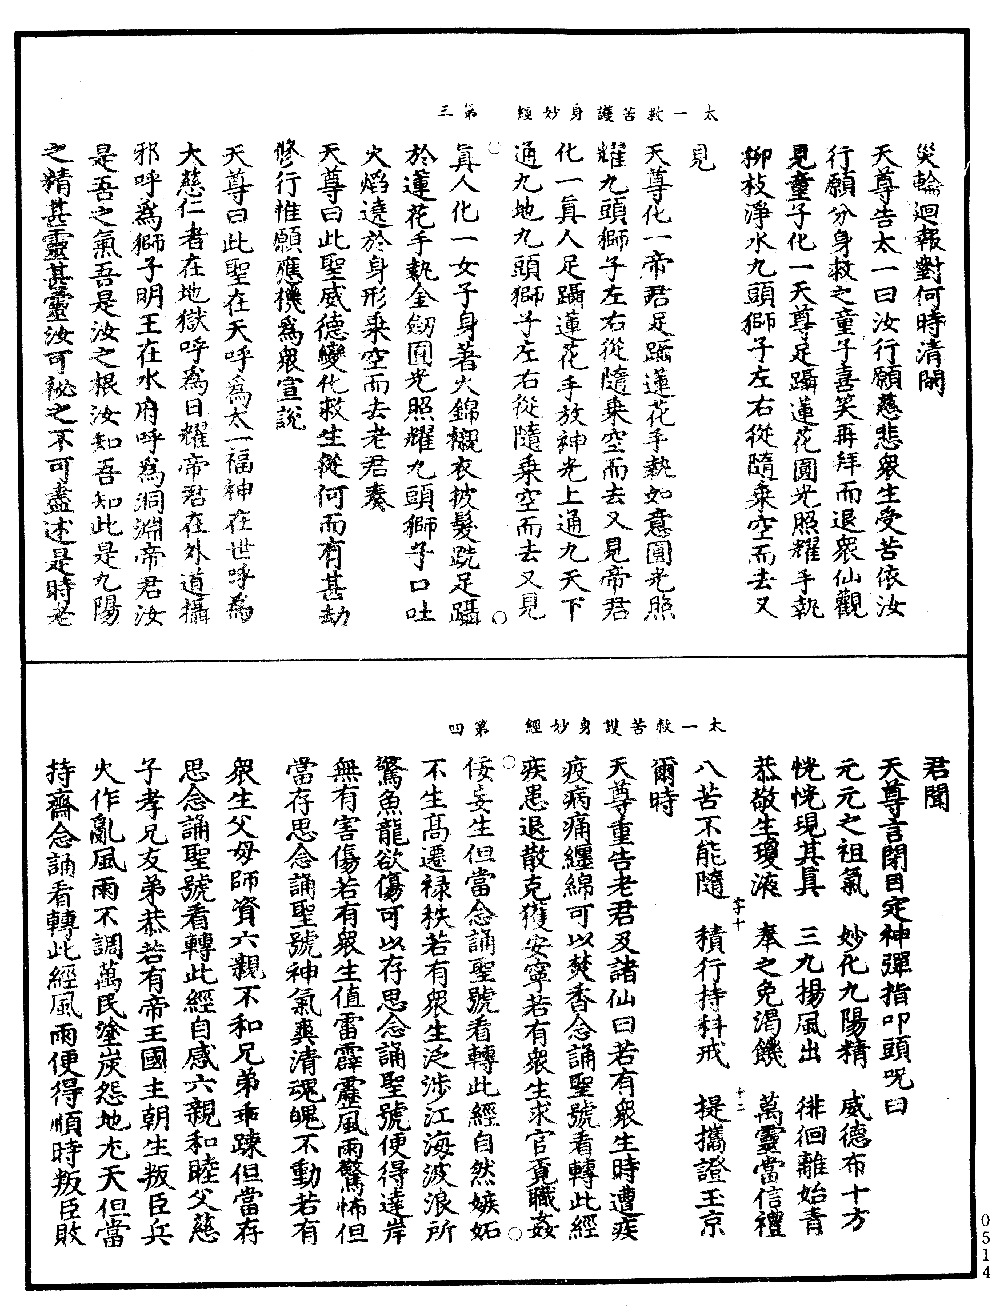 太一救苦護身妙經　第三
災輪迴報對何時清閑
天尊告太一曰汝行願慈悲衆生受苦依汝
行願分身救之童子喜笑再拜而退衆仙觀
見童子化一天尊足躡蓮花圓光照耀手執
柳枝淨水九頭獅子左右從隨乘空而去又
見
天尊化一帝君足躡蓮花手執如意圓光照
耀九頭獅子左右從隨乘空而去又見帝君
化一真人足躡蓮花手放神光上通九天下
通九地九頭獅子左右從隨乘空而去又見
真人化一女子身著火錦襯衣披髮跣足躡
於蓮花手執金劒圓光照耀九頭獅子口吐
火焰遶於身形乘空而去老君奏
天尊曰此聖威德變化救生從何而有甚劫
修行惟願應機爲衆宣説
天尊曰此聖在天呼爲太一福神在世呼爲
大慈仁者在地獄呼爲日耀帝君在外道攝
邪呼爲獅子明王在水府呼爲洞淵帝君汝
是吾之氣吾是汝之根汝知吾知此是九陽
之精甚靈甚靈汝可祕之不可盡述是時老
太一救苦護身妙經　第四
君聞
天尊言閉目定神彈指叩頭呪曰
元元之祖氣　妙化九陽精　威德布十方
恍恍現其真　三九揚風出　徘徊離始青
恭敬生瓊液　奉之免渴饑　萬靈當信禮
字十　十二
八苦不能隨　積行持科戒　提攜證玉京
爾時
天尊重告老君及諸仙曰若有衆生時遭疾
疫病痛纏綿可以焚香念誦聖號看轉此經
疾患退散克獲安寧若有衆生求官覓職姦
佞妄生但當念誦聖號看轉此經自然嫉妬
不生高遷禄秩若有衆生泛涉江海波浪所
驚魚龍欲傷可以存思念誦聖號便得達岸
無有害傷若有衆生值雷霹靂風雨驚怖但
當存思念誦聖號神氣爽清魂魄不動若有
衆生父母師資六親不和兄弟乖踈但當存
思念誦聖號看轉此經自感六親和睦父慈
子孝兄友弟恭若有帝王國主朝生叛臣兵
火作亂風雨不調萬民塗炭怨地尤天但當
持齋念誦看轉此經風雨便得順時叛臣敗
0514